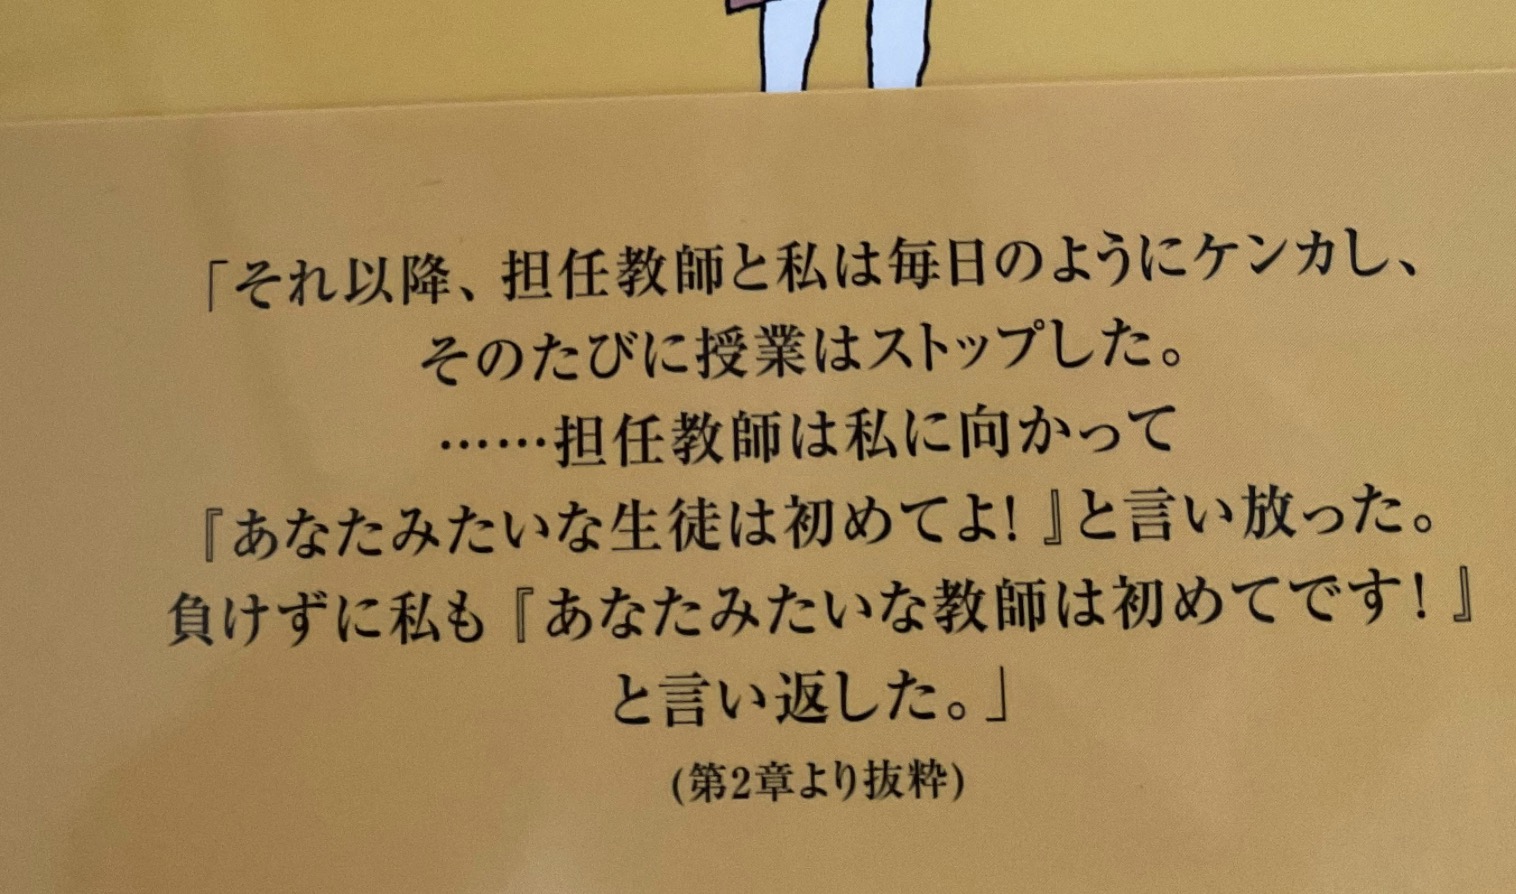 「それ以降、担任教師と私は毎日のようにケンカし、
そのたびに授業はストップした。
……担任教師は私に向かって
『あなたみたいな生徒は初めてよ!』と言い放った。
負けずに私も『あなたみたいな教師は初めてです!』
と言い返した。」
(第2章より抜粋)